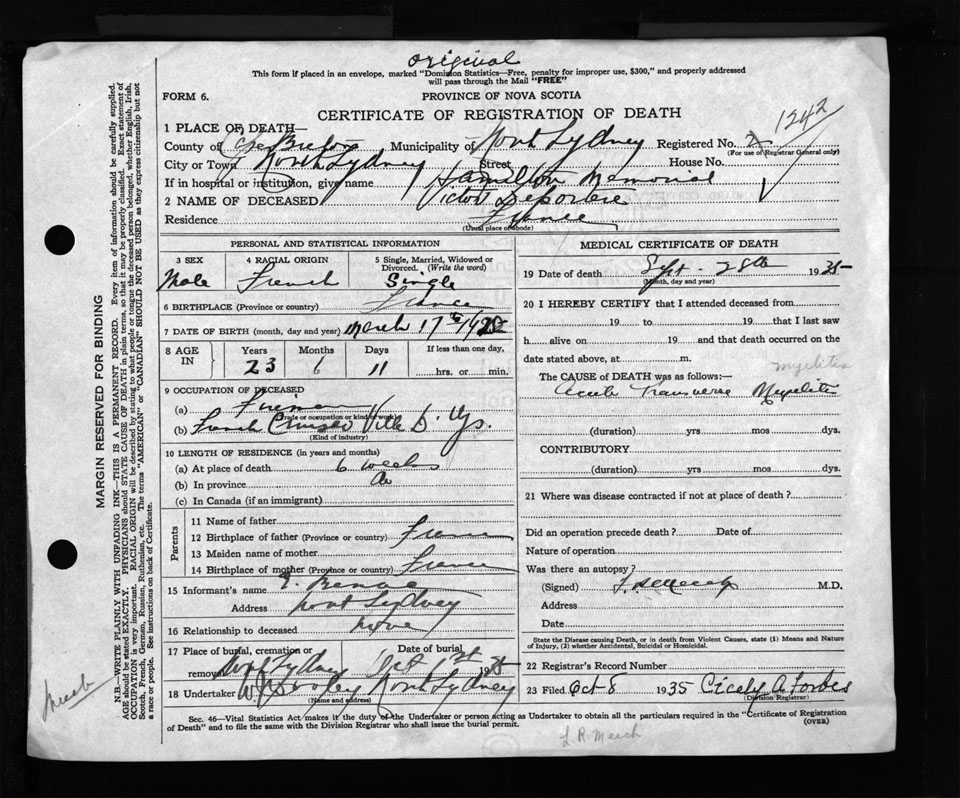 Original
This form if placed in an envelope, marked "Dominion Statistics—Free, penalty for improper use, $300," and properly addressed
will pass through the Mail "FREE"
FORM 6.
PROVINCE OF NOVA SCOTIA
CERTIFICATE OF REGISTRATION OF DEATH
1242
1 PLACE OF DEATH—
County of Cape Breton Municipality of North Sydney Registered No.
(For use of Registrar General only)
City or Town North Sydney Street House No.
If in hospital or institution, give name Hamilton Memorial
2 NAME OF DECEASED Victor
Residence France
(Usual place of abode)
PERSONAL AND STATISTICAL INFORMATION
3 SEX
Male
4 RACIAL ORIGIN
French
5 Single, Married, Widowed or
Divorced. (Write the word)
Single
6 BIRTHPLACE (Province or country) France
7 DATE OF BIRTH (month, day and year) March 17th
8 AGE
IN
Years
23
Months
6
Days
11
If less than one day,
hrs. or min.
9 OCCUPATION OF DECEASED
(a)
(Trade or occupation or kind of work)
(b) French Cruiser Ville D' Ys.
(Kind of industry)
10 LENGTH OF RESIDENCE (in years and months)
(a) At place of death 6 weeks
(b) In province
(c) In Canada (if an immigrant)
Parents
11 Name of father
12 Birthplace of father (Province or country) France
13 Maiden name of mother
14 Birthplace of mother (Province or country) France
15 Informant's name
Address North Sydney
16 Relationship to deceased None
17 Place of burial, cremation or
removal North Sydney
Date of burial
Oct 1st 1935
18 Undertaker North Sydney
(Name and address)
MEDICAL CERTIFICATE OF DEATH
19 Date of death Sept - 28th 1935
(Month, day and year)
20 I HEREBY CERTIFY that I attended deceased from
19 to 19 that I last saw
h alive on 19 and that death occurred on the
date stated above, at m.
myelitis
The CAUSE OF DEATH was as follows:—
Acute Transverse Myelitis
(duration) yrs mos dys.
CONTRIBUTORY
(duration) yrs mos dys.
21 Where was disease contracted if not at place of death?
Did an operation precede death? Date of
Nature of operation
Was there an autopsy?
(Signed) M.D.
Address
Date
State the Disease causing Death, or in death from Violent Causes, state (1) Means and Nature
of Injury, (2) whether Accidental, Suicidal or Homicidal.
22 Registrar's Record Number
23 Filed Oct 8 1935 Cicely A. Forbes
(Division Registrar)
Sec. 46—Vital Statistics Act makes it the duty of the Undertaker or person acting as Undertaker to obtain all the particulars required in the "Certificate of Registration
of Death" and to file the same with the Division Registrar who shall issue the burial permit.
(OVER)
L. R. Meech
MARGIN RESERVED FOR BINDING
N.B.—WRITE PLAINLY WITH UNFADING INK—THIS IS A PERMANENT RECORD. Every item of information should be carefully supplied.
AGE should be stated EXACTLY. PHYSICIANS should STATE CAUSE OF DEATH in plain terms, so that it may be properly classified. Exact statement of
OCCUPATION is very important. RACIAL ORIGIN will be described by stating to what people or tongue the deceased person belonged, whether English, Irish,
Scotch, French, German, Russian, Ruthenian, etc. The terms "AMERICAN" or "CANADIAN" SHOULD NOT BE USED as they express citizenship but not
a race or people. See instructions on back of Certificate.
Meech